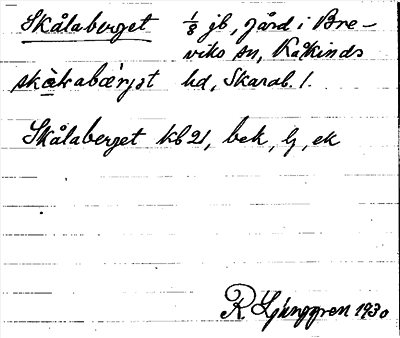 Skålaberget 1/8 jb, gård i Bre-
viks sn, Kåkinds
skàlabœ̀rjət hd, Skarab. l.
Skålaberget kb 21, bek, lj, ek
R. Ljunggren 1930